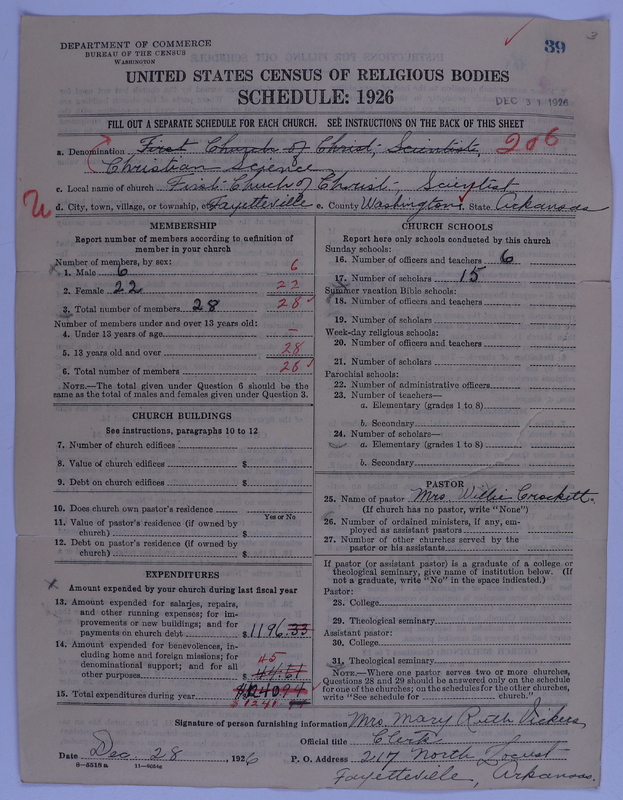 39
3
DEPARTMENT OF COMMERCE
BUREAU OF THE CENSUS
WASHINGTON
UNITED STATES CENSUS OF RELIGIOUS BODIES
SCHEDULE: 1926
DEC 31 1926
FILL OUT A SEPARATE SCHEDULE FOR EACH CHURCH. SEE INSTRUCTIONS ON THE BACK OF THIS SHEET
a. Denomination First Church of Christ, Scientist, 206
Christian Science
c. Local name of church First Church of Christ, Scientist
d. City, town, village, or township, etc. Fayetteville e. County Washington f. State Arkansas
MEMBERSHIP
Report number of members according to definition of
member in your church
Number of members, by sex:
1. Male 6 6
2. Female 22 22
3. Total number of members 28 28
Number of members under and over 13 years old:
4. Under 13 years of age –
5. 13 years old and over 28
6. Total number of members 28
NOTE.—The total given under Question 6 should be the
same as the total of males and females given under Question 3.
CHURCH BUILDINGS
See instructions, paragraphs 10 to 12
7. Number of church edifices
8. Value of church edifices $
9. Debt on church edifices $
10. Does church own pastor's residence
Yes or No
11. Value of pastor's residence (if owned by
church) $
12. Debt on pastor's residence (if owned by
church) $
EXPENDITURES
Amount expended by your church during last fiscal year
13. Amount expended for salaries, repairs,
and other running expenses; for im-
provements or new buildings; and for
payments on church debt $1196.33
14. Amount expended for benevolences, in-
cluding home and foreign missions; for
denominational support; and for all
other purposes $ 44.61 45
15. Total expenditures during year $1240.94
$1241
CHURCH SCHOOLS
Report here only schools conducted by this church
Sunday schools:
16. Number of officers and teachers 6
17. Number of scholars 15
Summer vacation Bible schools:
18. Number of officers and teachers
19. Number of scholars
Week-day religious schools:
20. Number of officers and teachers
21. Number of scholars
Parochial schools:
22. Number of administrative officers
23. Number of teachers—
a. Elementary (grades 1 to 8)
b. Secondary
24. Number of scholars—
a. Elementary (grades 1 to 8)
b. Secondary
PASTOR
25. Name of pastor Mrs. Willie Crockett.
(If church has no pastor, write "None")
26. Number of ordained ministers, if any, em-
ployed as assistant pastors
27. Number of other churches served by the
pastor or his assistants
If pastor (or assistant pastor) is a graduate of a college or
theological seminary, give name of institution below. (If
not a graduate, write "No" in the space indicated.)
Pastor:
28. College
29. Theological seminary
Assistant pastor:
30. College
31. Theological seminary
NOTE.—Where one pastor serves two or more churches,
Questions 28 and 29 should be answered only on the schedule
for one of the churches; on the schedules for the other churches,
write "See schedule for church."
Signature of person furnishing information Mrs. Mary Ruth Vickers
Official title Clerk
Date Dec. 28, 1926 P. O. Address 217 North Locust
8—5518 a 11—9054a Fayetteville, Arkansas.